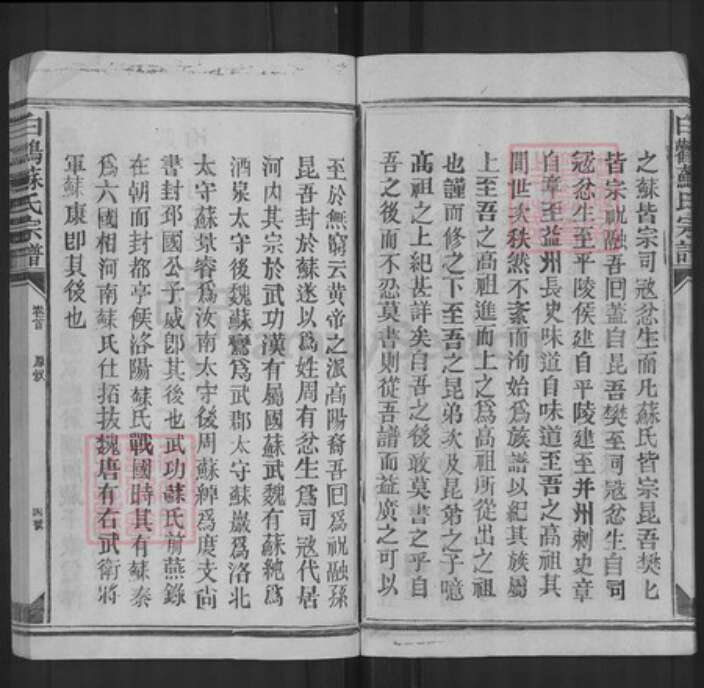 之蘇皆宗司寇忿生而凡蘇氏皆宗昆吾樊七
皆宗祝融吾回蓋自昆吾樊至河寇忿生自司
寇忿生至平陵侯建自平陵建至并州刺史章
自章至益州長史味道自味道至吾之高祖其
間世次秩然不紊而洵始為族譜以紀其族屬
上至吾之高祖進而上之為高祖所從出之祖
也謹而修之下至吾之昆弟次及昆弟之子噫
高祖之上紀甚詳矣自吾之後敢莫書之乎自
吾之後而不忍莫書則從吾譜而益廣之可以
至於無窮云黃帝之派高陽裔吾回為祝融孫
昆吾封於蘇遂以為姓周有忿生為司寇代居
河內其宗於武功漢有屬國蘇武魏有蘇純為
酒泉太守後魏蘇鸞為武郡太守蘇巖為洛北
太守蘇景睿為汝南太守後周蘇綽為度支尚
書封邳國公子威卽其後也武功蘇氏前燕錄
在朝而封都亭侯洛陽蘇氏戰國時其有蘇秦
為六國相河南蘇氏仕拓拔魏唐有右武衛將
軍蘇康卽其後也
白鶴蘇氏宗譜
卷首
四號
白鶴蘇氏宗譜